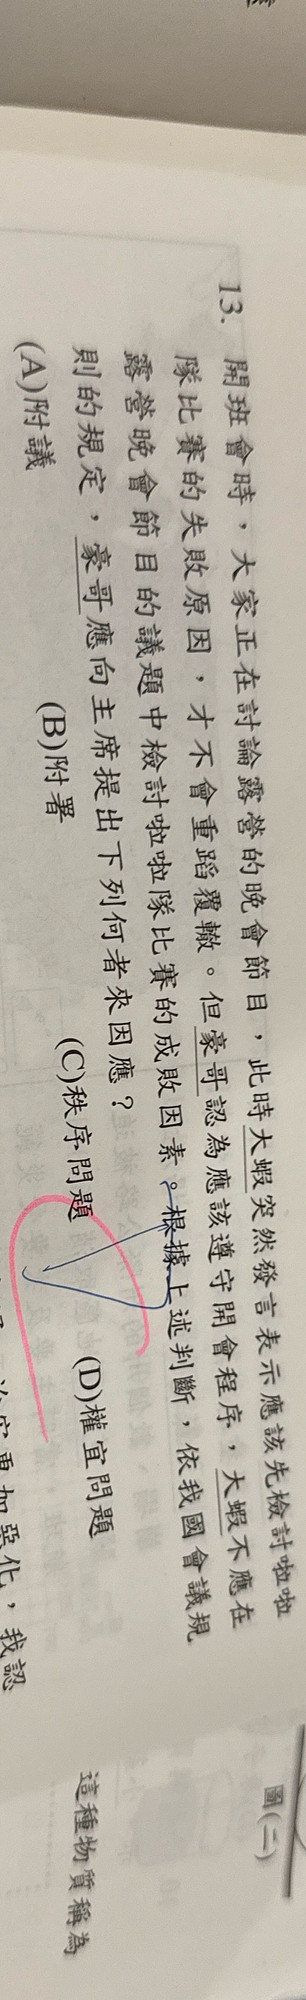 13. 開班會時，大家正在討論露營的晚會節目，此時大蝦突然發言表示應該先檢討啦啦
隊比賽的失敗原因，才不會重蹈覆轍。但豪哥認為應該遵守開會程序，大蝦不應在
露營晚會節目的議題中檢討啦啦隊比賽的成敗因素。根據上述判斷，依我國會議規
則的規定，豪哥應向主席提出下列何者來因應？
(A)附議 (B)附署 (C)秩序問題 (D)權宜問題
更加惡化，我認
圖(二)
這種物質稱為